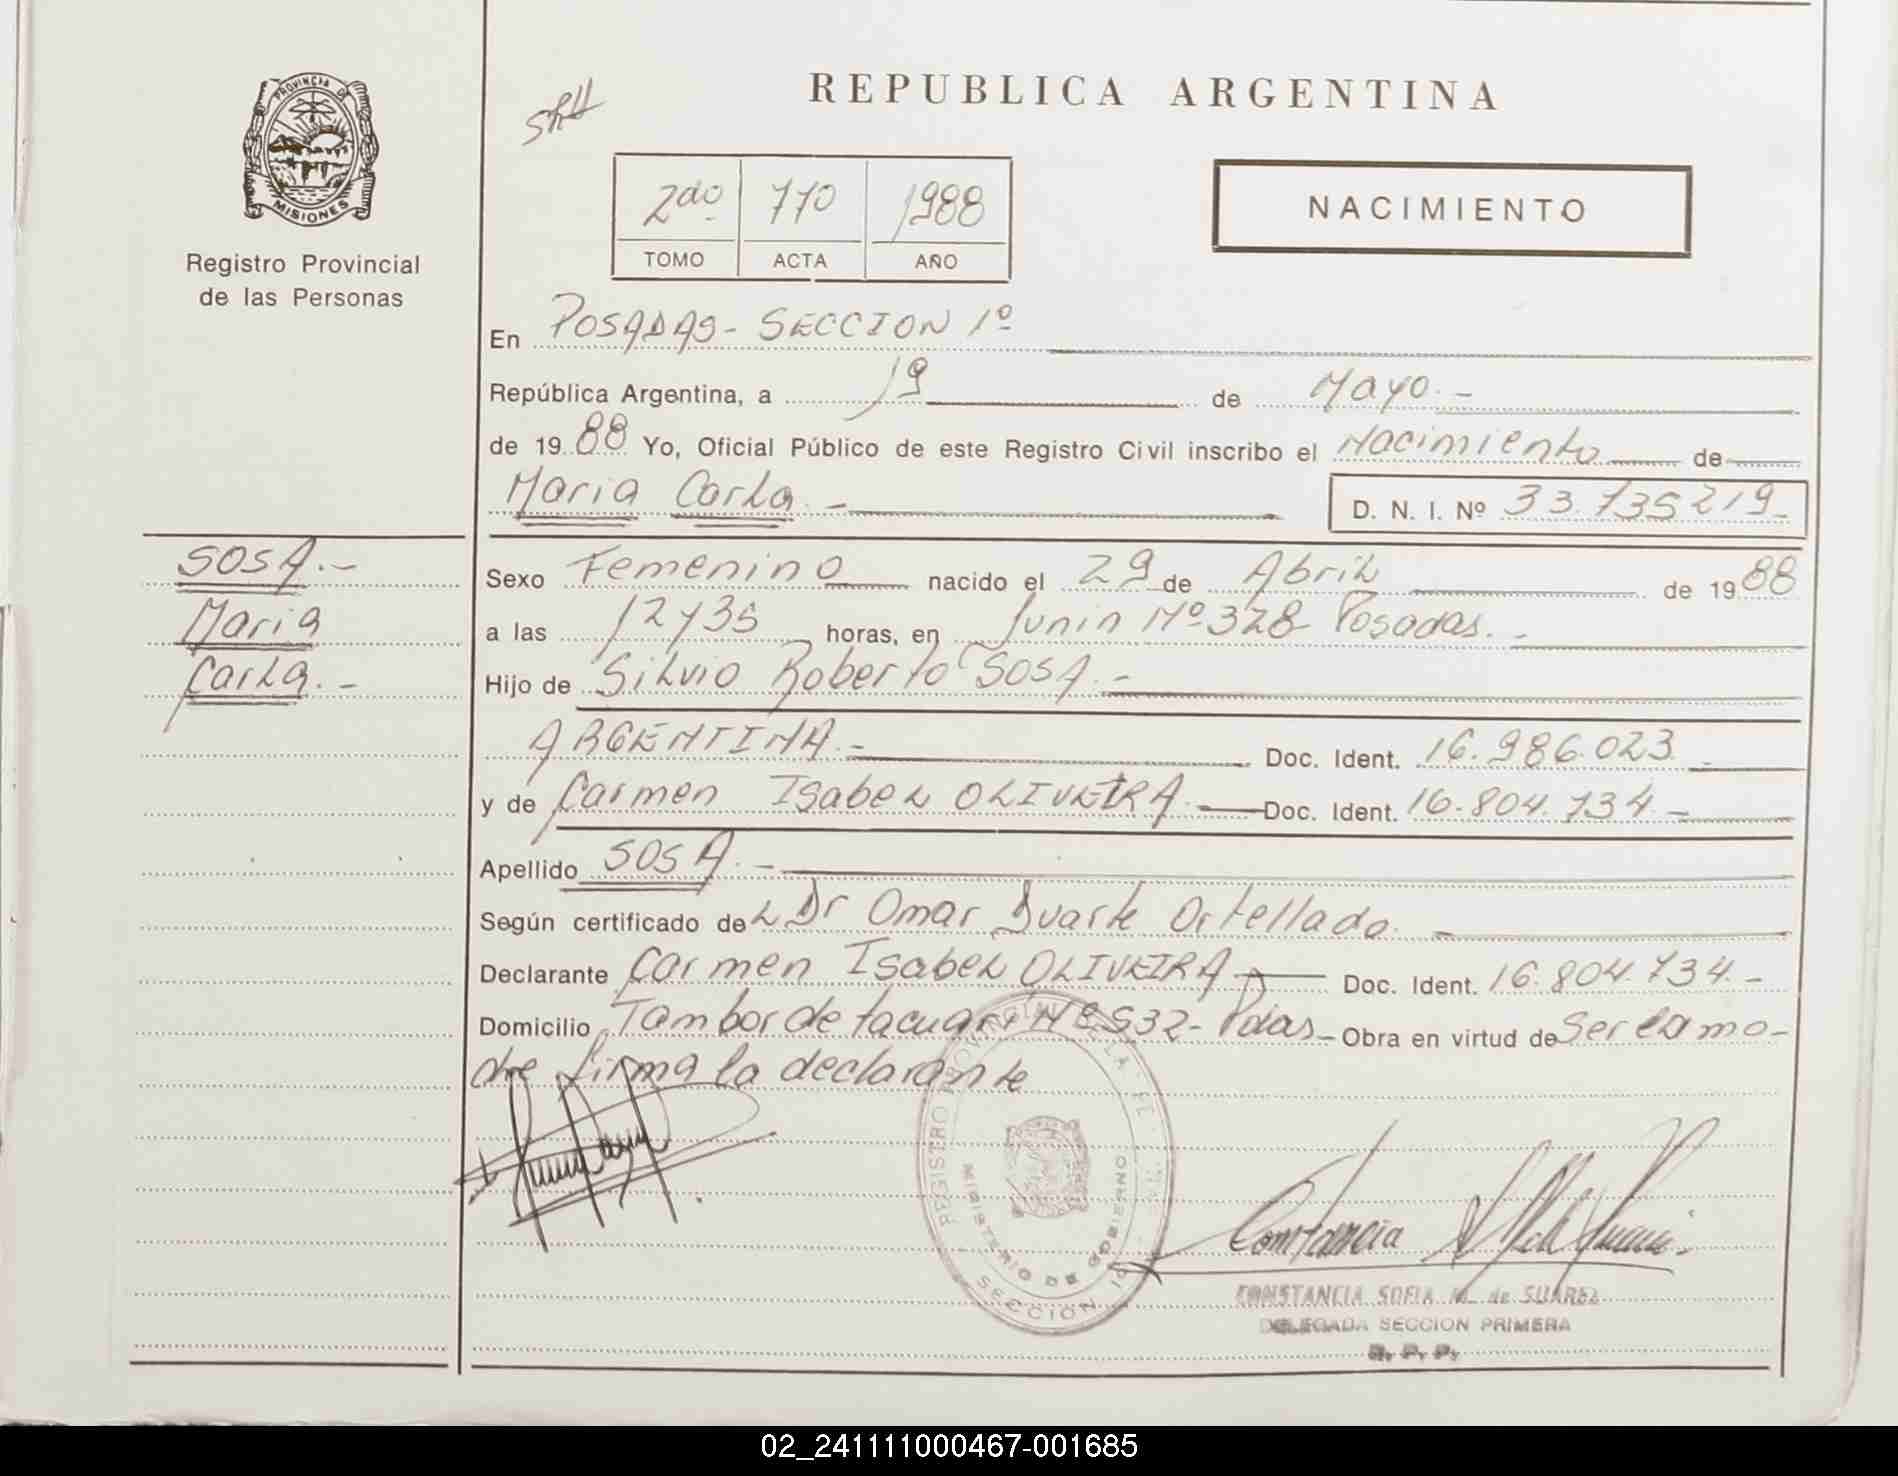 PROVINCIA DE
MISIONES
Registro Provincial
de las Personas
REPUBLICA ARGENTINA
2do 770 1988
TOMO ACTA AÑO
NACIMIENTO
En POSADAS - SECCION 1º
República Argentina, a 19 de Mayo.-
de 1988 Yo, Oficial Público de este Registro Civil inscribo el Nacimiento de
Maria Carla.- D. N. I. Nº 33.735219-
SOSA.-
Maria
Carla.-
Sexo Femenino nacido el 29 de Abril de 1988
a las 12 y 35 horas, en Junin Nº 328 Posadas.-
Hijo de Silvio Roberto SOSA.-
ARGENTINA.- Doc. Ident. 16.986.023.-
y de Carmen Isabel OLIVEIRA- Doc. Ident. 16.804.734.-
Apellido SOSA.-
Según certificado del Dr Omar Duarte Ortellado.-
Declarante Carmen Isabel OLIVEIRA- Doc. Ident. 16.804.734.-
Domicilio Tambor de tacuari - Pdas- Obra en virtud de Ser la ma-
dre firma la declarante
REGISTRO PROVINCIAL DE LA
MINISTERIO DE GOBIERNO
SECCION 1º
Constancia
CONSTANCIA SOFIA M. de SUAREZ
DELEGADA SECCION PRIMERA
R. P. P.
02_241111000467-001685